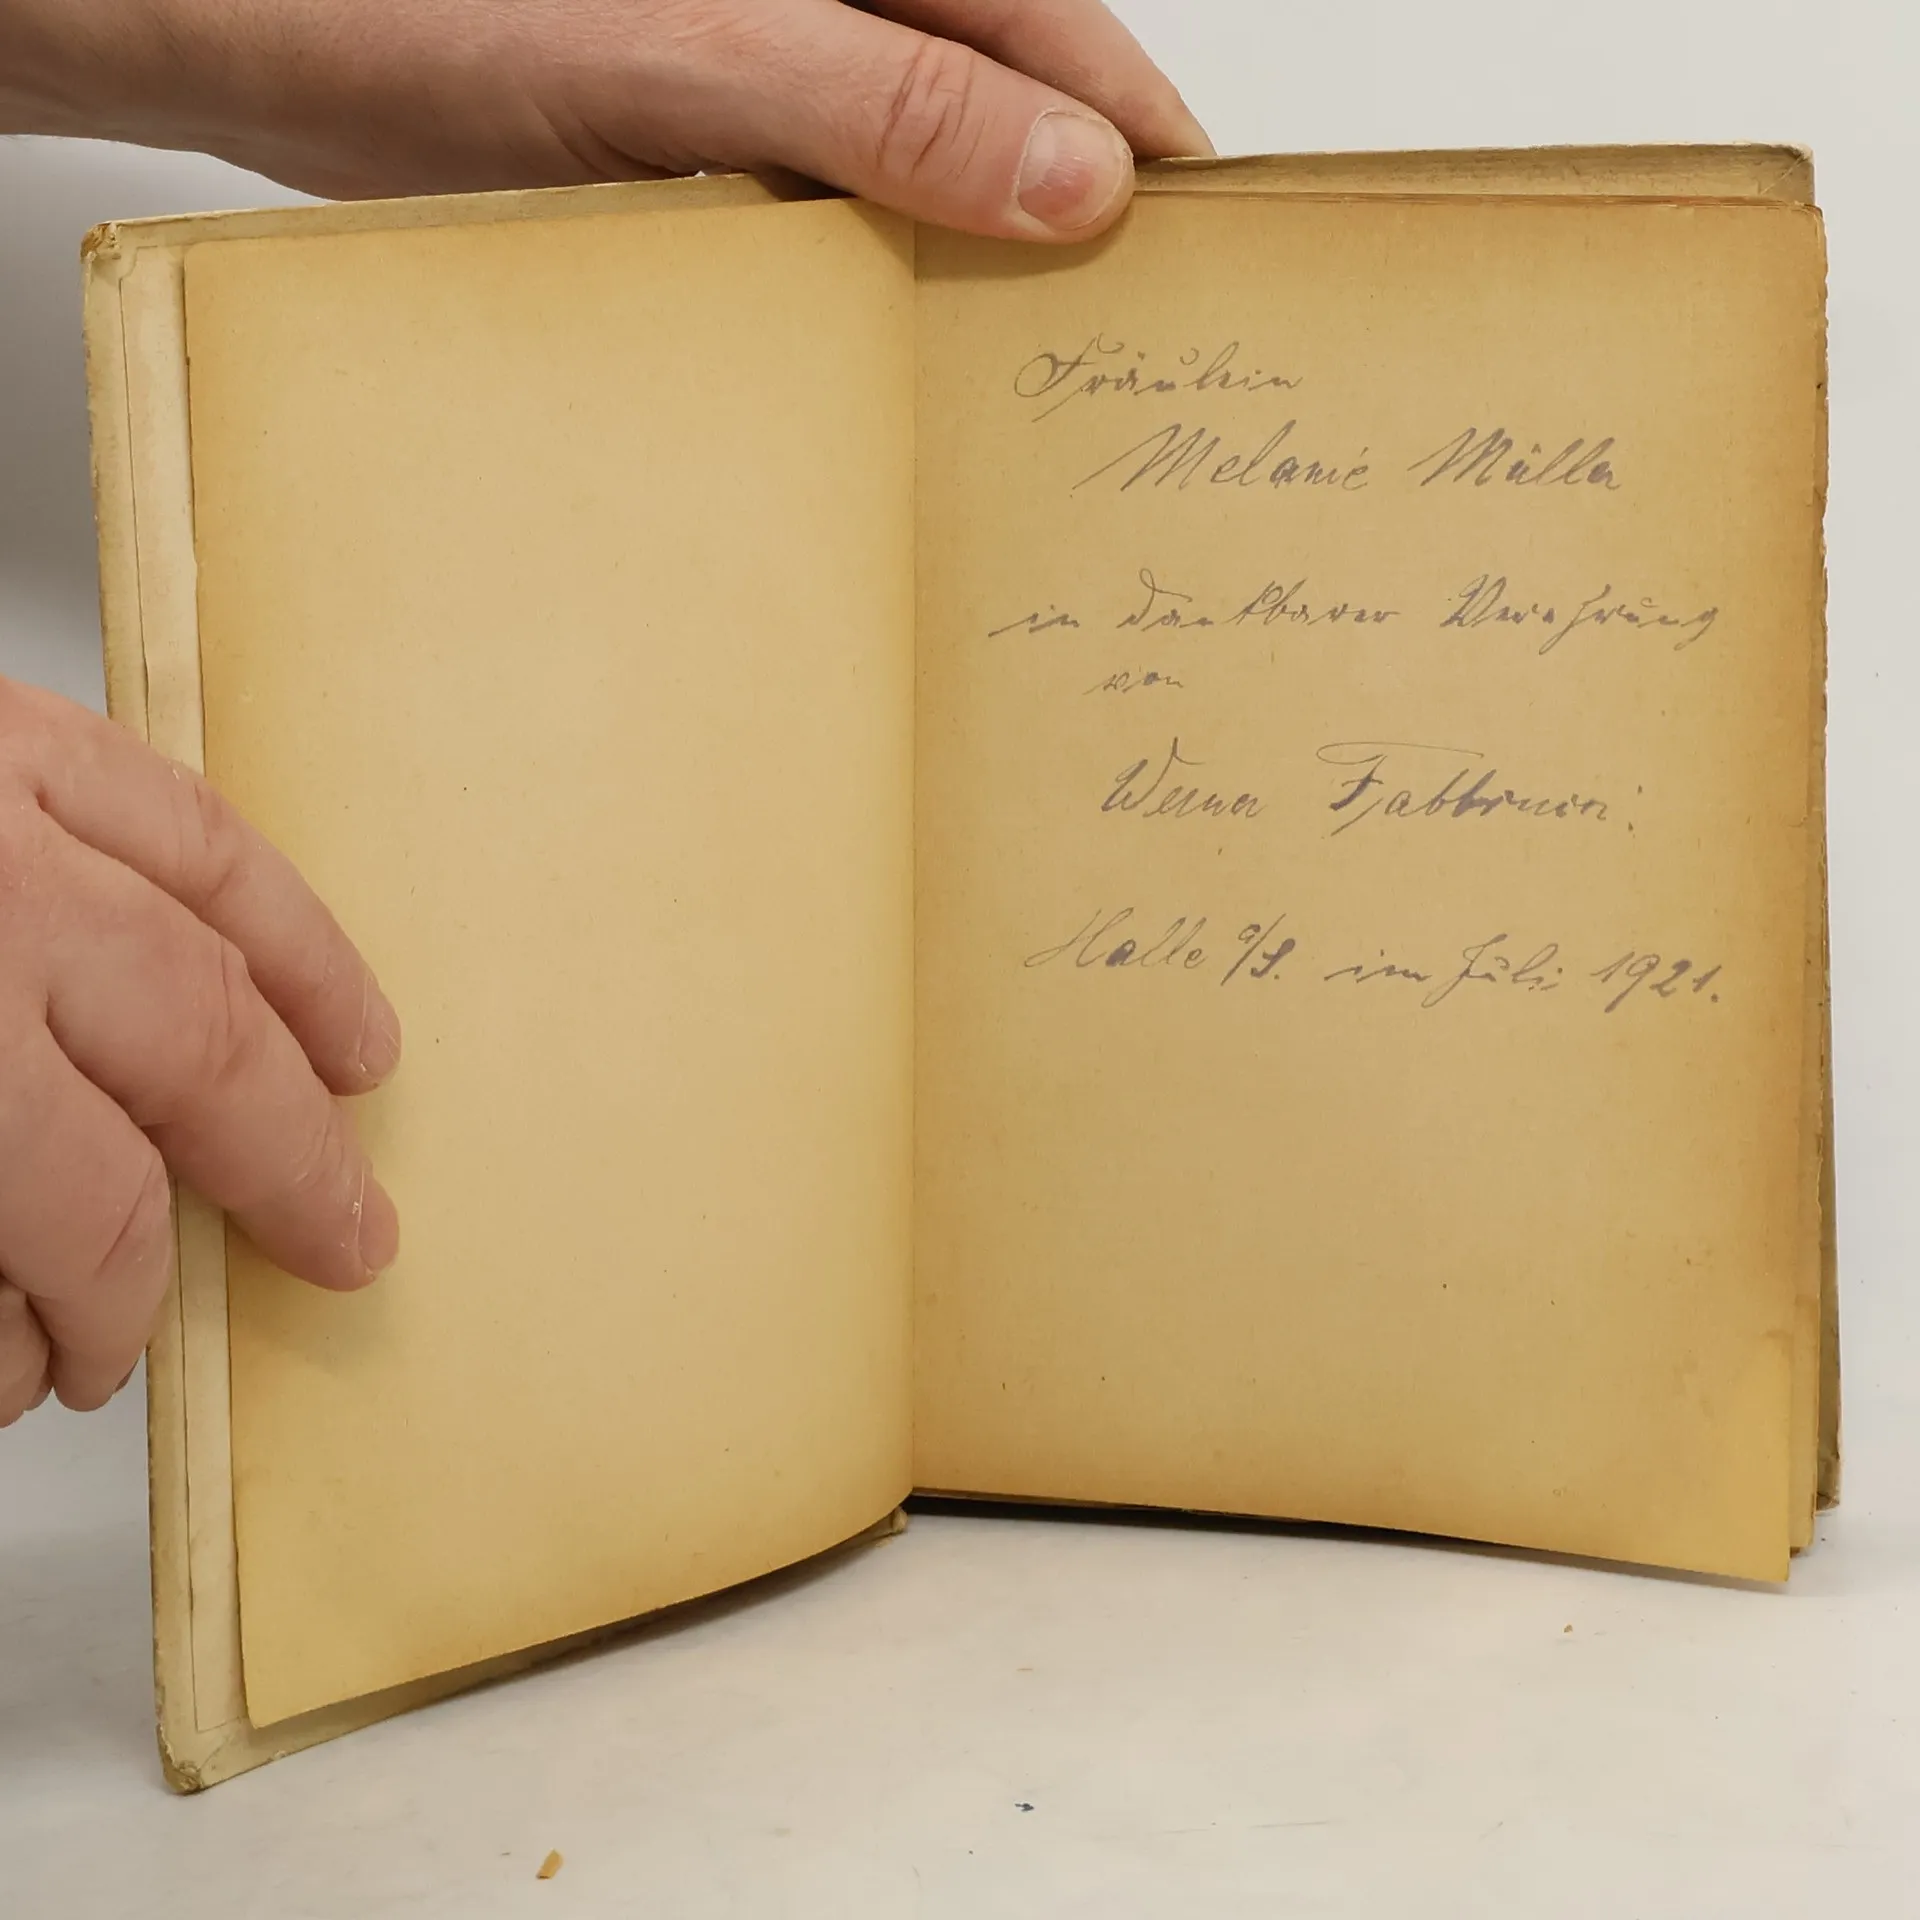 Fräulein
Melanie Müller
in dankbarer Verehrung
von
Werner
Halle a/S. im Juli 1921.